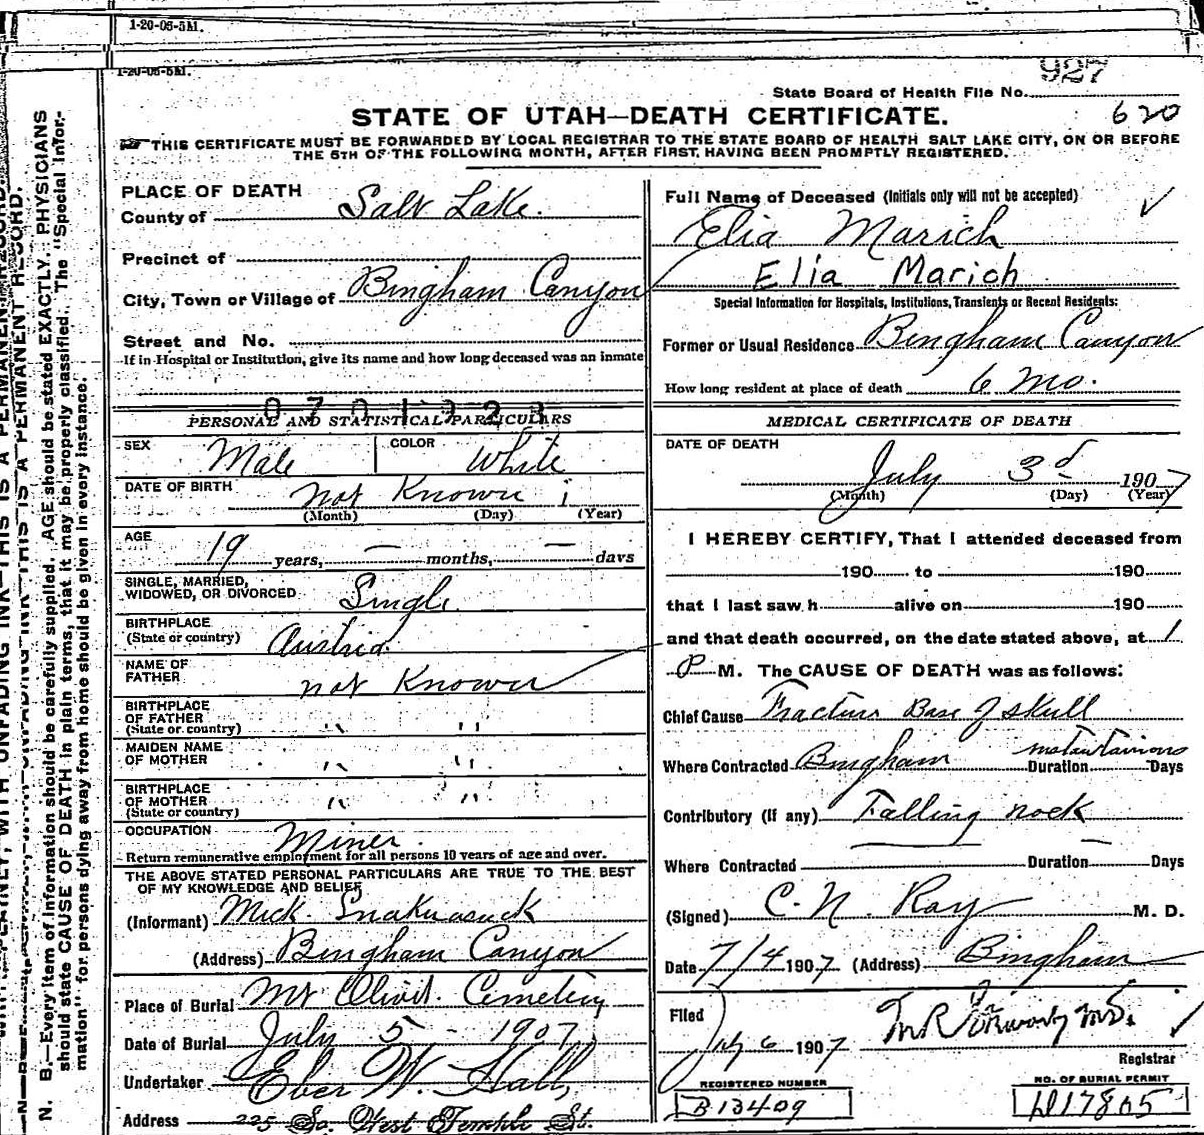 1-20-06-5M.
1-20-06-5M.
927
State Board of Health File No.
620
STATE OF UTAH—DEATH CERTIFICATE.
THIS CERTIFICATE MUST BE FORWARDED BY LOCAL REGISTRAR TO THE STATE BOARD OF HEALTH SALT LAKE CITY, ON OR BEFORE
THE 5TH OF THE FOLLOWING MONTH, AFTER FIRST HAVING BEEN PROMPTLY REGISTERED.
PLACE OF DEATH
County of Salt Lake.
Precinct of
City, Town or Village of Bingham Canyon
Street and No.
If in Hospital or Institution, give its name and how long deceased was an inmate
0701923
PERSONAL AND STATISTICAL PARTICULARS
SEX Male COLOR White
DATE OF BIRTH not Known
(Month) (Day) (Year)
AGE 19 years, — months, — days
SINGLE, MARRIED,
WIDOWED, OR DIVORCED Single
BIRTHPLACE
(State or country) Austria.
NAME OF
FATHER not Known
BIRTHPLACE
OF FATHER
(State or country) " "
MAIDEN NAME
OF MOTHER " "
BIRTHPLACE
OF MOTHER
(State or country) " "
OCCUPATION Miner.
Return remunerative employment for all persons 10 years of age and over.
THE ABOVE STATED PERSONAL PARTICULARS ARE TRUE TO THE BEST
OF MY KNOWLEDGE AND BELIEF
(Informant) Mick
(Address) Bingham Canyon
Place of Burial Mt Olivet Cemetery
Date of Burial July 5 - 1907
Undertaker Eber W Hall,
Address 225 So. West Temple St.
Full Name of Deceased (Initials only will not be accepted)
Elia Marich
Elia Marich
Special Information for Hospitals, Institutions, Transients or Recent Residents:
Former or Usual Residence Bingham Canyon
How long resident at place of death 6 Mo.
MEDICAL CERTIFICATE OF DEATH
DATE OF DEATH
July 3d 1907
(Month) (Day) (Year)
I HEREBY CERTIFY, That I attended deceased from
190 to 190
that I last saw h alive on 190
and that death occurred, on the date stated above, at 1
P M. The CAUSE OF DEATH was as follows:
Chief Cause Fracture Base of skull
Where Contracted Bingham Duration instantanious Days
Contributory (if any) Falling rock
Where Contracted — Duration — Days
(Signed) C. N. Ray M. D.
Date 7/4 1907 (Address) Bingham
Filed
July 6 1907
Registrar
REGISTERED NUMBER
B 13409
NO. OF BURIAL PERMIT
D17865
N. B.—Every item of information should be carefully supplied. AGE should be stated EXACTLY. PHYSICIANS
should state CAUSE OF DEATH in plain terms, that it may be properly classified. The "Special Infor-
mation" for persons dying away from home should be given in every instance.